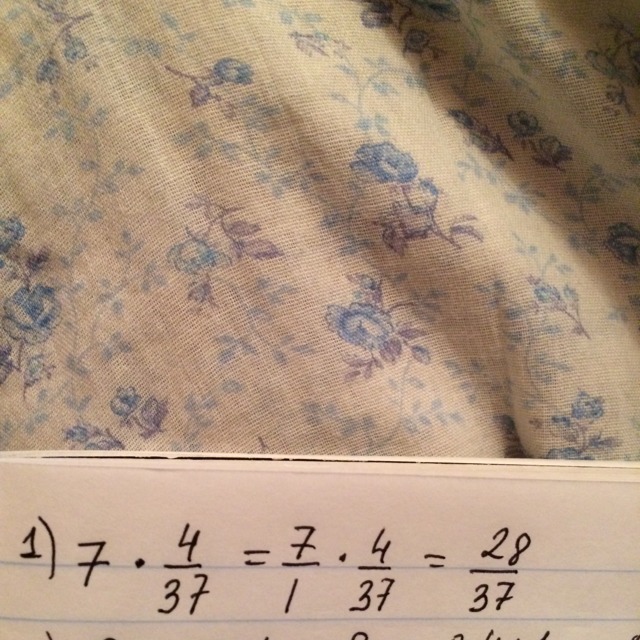 1) 7 · 4/37 = 7/1 · 4/37 = 28/37